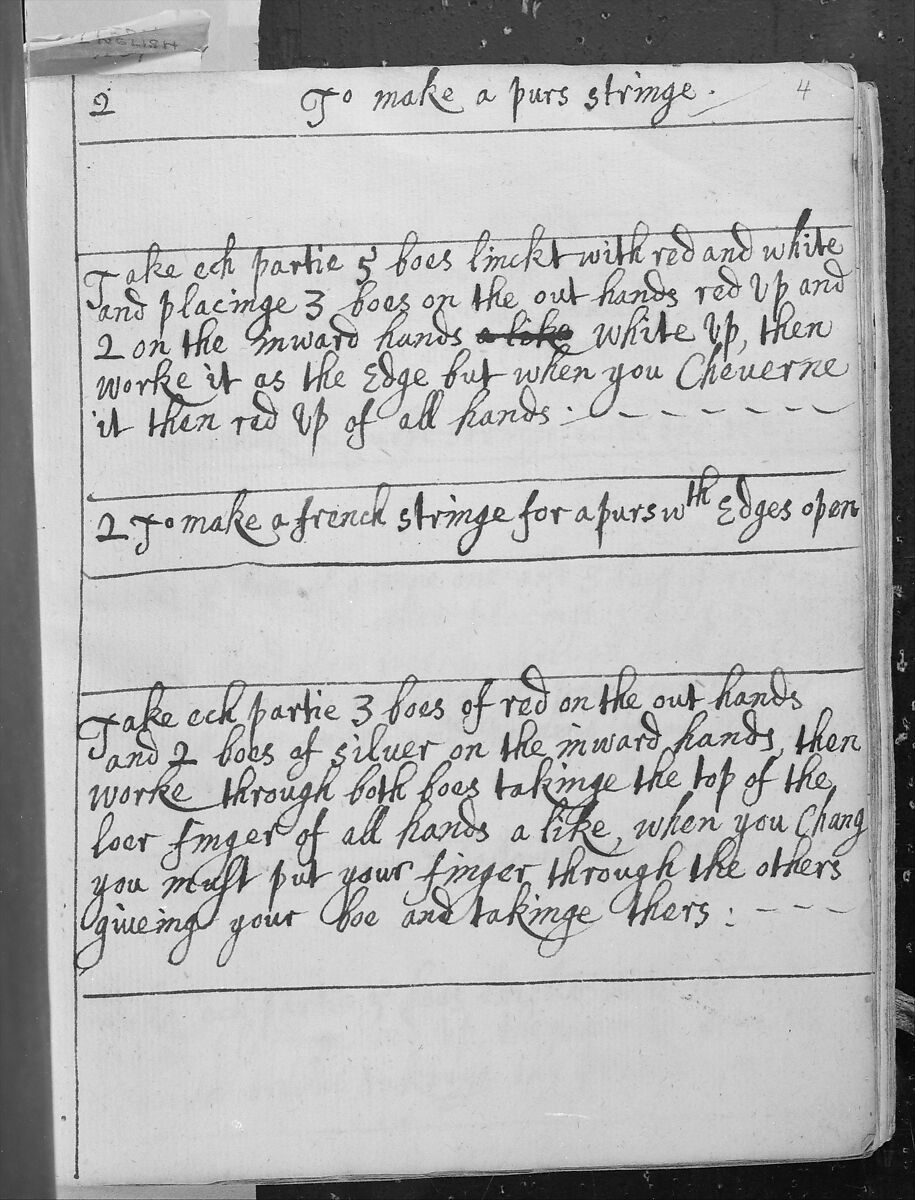 2 To make a purs stringe. 4
Take ech partie 5 boes linckt with red and white
and placinge 3 boes on the out hands red Up and
2 on the inward hands a like white Up, then
worke it as the Edge but when you Cheverne
it then red Up of all hands :
2 To make a french stringe for a purs wth Edges open
Take ech partie 3 boes of red on the out hands
and 2 boes of silver on the inward hands, then
worke through both boes takinge the top of the
loer finger of all hands a like, when you Chang
you must put your finger through the others
giveing your boe and takinge thers :